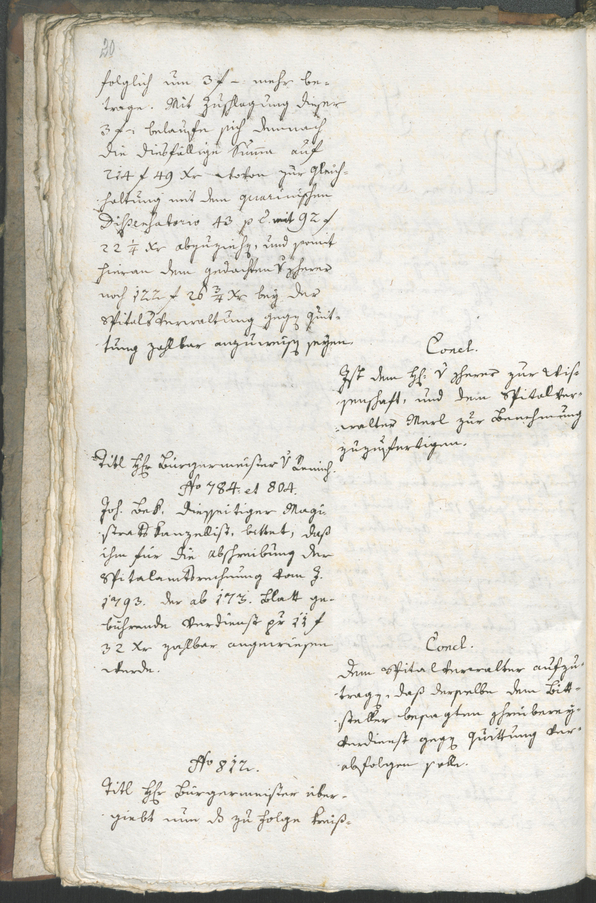 20
folglich um 3 f – mehr be-
trage. Mit Zuschlagung dieser
3 f: belaufe sich demnach
die diesfällige Summa auf
214 f 49 Xr wovon zur Gleich-
haltung mit dem
43 p C. mit 92 f
22 1/4 Xr abzuziehen, und somit
hieran dem gedachten
noch 122 f 26 3/4 Xr bey der
Spitalsverwaltung gegen Quit-
tung zahlbar anzuweisen seyen.
Concl.
Ist dem H. zur Wis-
senschaft, und dem Spitalver-
walter Merl zur Benehmung
zuzufertigen.
Titl Hr Bürgermeister V
No 784. et 804.
Joh. Bek. diesseitiger Magi-
stratskanzellist, bittet, daß
ihm für die Abschreibung der
Spitalamtsrechnung vom J.
1793. der ab 173. Blatt ge-
bührende Verdienst pr 11 f
32 Xr zahlbar angewiesen
werde.
Concl.
Dem Spitalverwalter aufzu-
tragen, daß derselbe dem Bitt-
steller besagten Schreiberey-
verdienst gegen Quittung ver-
abfolgen solle.
No 812.
Titl Hr Bürgermeister über-
giebt nun zu Folge Kreis-